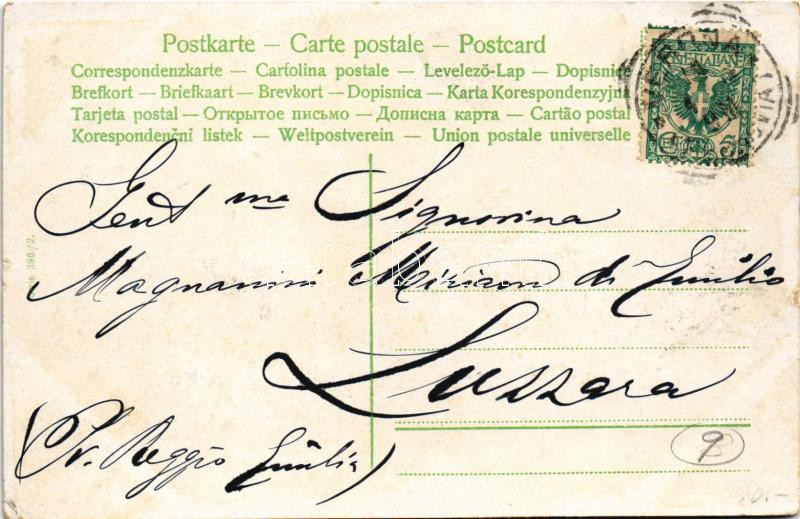 Postkarte – Carte postale – Postcard
Correspondenzkarte – Cartolina postale – Levelező-Lap – Dopisnice
Brefkort – Briefkaart – Brevkort – Dopisnica – Karta Korespondenzyjna
Tarjeta postal – Открытое письмо – Дописна карта – Cartão postal
Korespondenčni listek – Weltpostverein – Union postale universelle
POSTE ITALIANE
5
Gent ma Signorina
Magnanini Miriam di Emilio
Luzzara
(Pr. Reggio Emilia)
396/2.
9